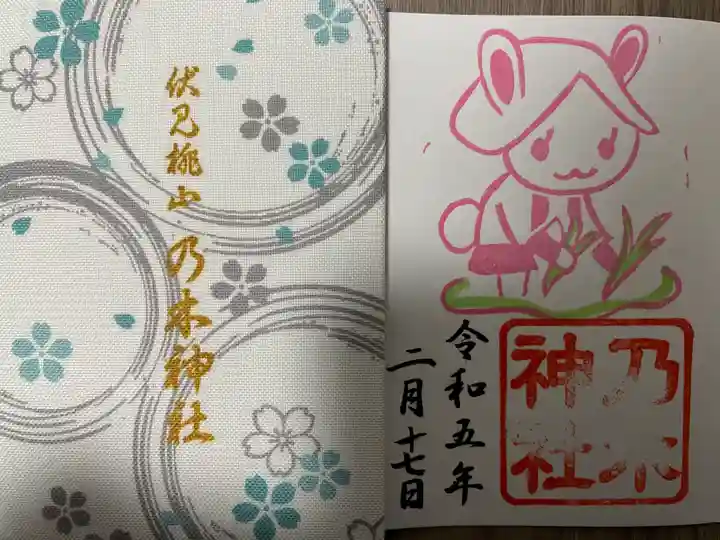 伏見桃山乃木神社
乃木
神社
令和五年
二月十七日